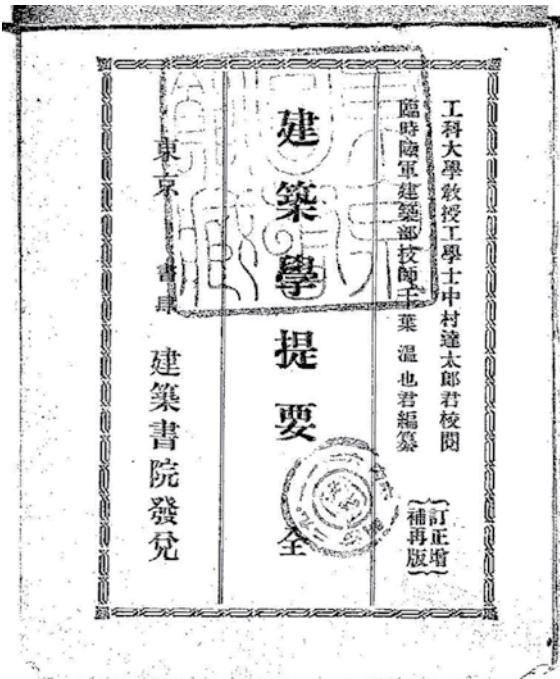 工科大學敎授工學士中村達太郎君校閱
臨時陸軍建築部技師千葉溫也君編纂
訂正增
補再版
建築學提要 全
東京 書肆 建築書院發兌